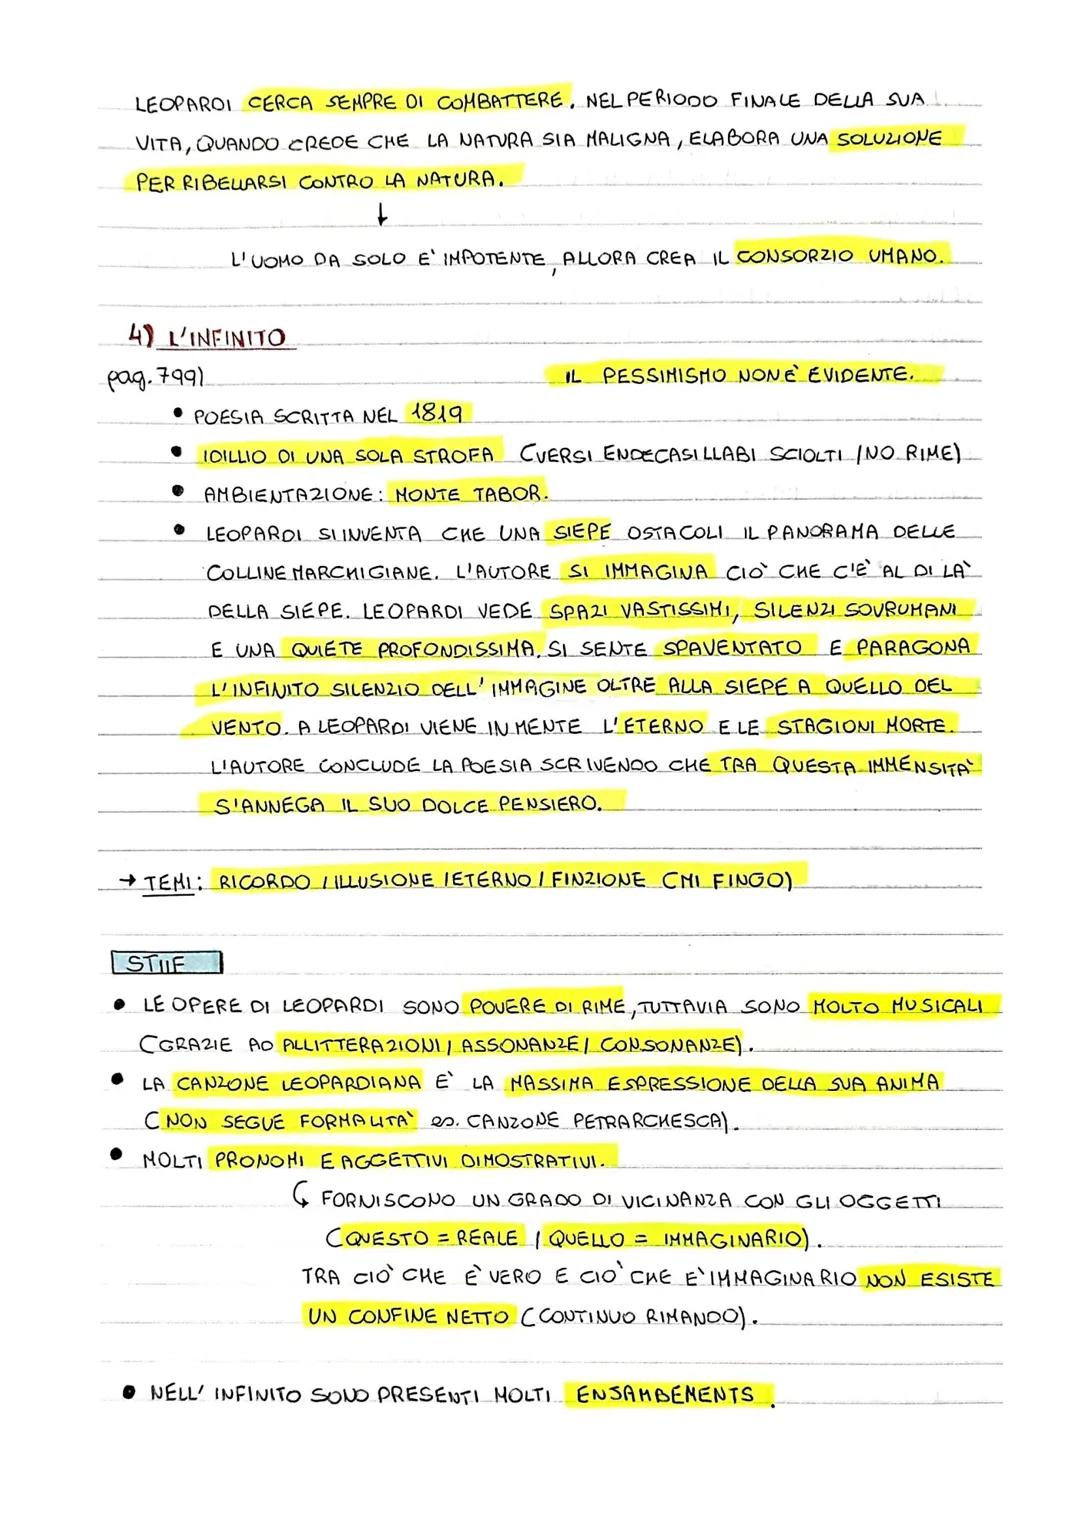 LEOPARDI CERCA SEMPRE DI COMBATTERE. NEL PERIODO FINALE DELLA SUA
VITA, QUANDO CREDE CHE LA NATURA SIA MALIGNA, ELABORA UNA SOLUZIONE
PER RIBELLARSI CONTRO LA NATURA.
↓
L'UOMO DA SOLO E' IMPOTENTE, ALLORA CREA IL CONSORZIO UMANO.
4) L'INFINITO
pag. 799) IL PESSIMISMO NON E' EVIDENTE.
• POESIA SCRITTA NEL 1819
• IDILLIO DI UNA SOLA STROFA (VERSI ENDECASILLABI SCIOLTI / NO RIME)
• AMBIENTAZIONE: MONTE TABOR.
• LEOPARDI SI INVENTA CHE UNA SIEPE OSTACOLI IL PANORAMA DELLE
COLLINE MARCHIGIANE. L'AUTORE SI IMMAGINA CIO' CHE C'E' AL DI LA'
DELLA SIEPE. LEOPARDI VEDE SPAZI VASTISSIMI, SILENZI SOVRUMANI
E UNA QUIETE PROFONDISSIMA. SI SENTE SPAVENTATO E PARAGONA
L'INFINITO SILENZIO DELL'IMMAGINE OLTRE ALLA SIEPE A QUELLO DEL
VENTO. A LEOPARDI VIENE IN MENTE L'ETERNO E LE STAGIONI MORTE.
L'AUTORE CONCLUDE LA POESIA SCRIVENDO CHE TRA QUESTA IMMENSITA'
S'ANNEGA IL SUO DOLCE PENSIERO.
→ TEMI: RICORDO / ILLUSIONE / ETERNO / FINZIONE (MI FINGO)
STILE
• LE OPERE DI LEOPARDI SONO POVERE DI RIME, TUTTAVIA SONO MOLTO MUSICALI
(GRAZIE AD ALLITTERAZIONI / ASSONANZE / CONSONANZE).
• LA CANZONE LEOPARDIANA E' LA MASSIMA ESPRESSIONE DELLA SUA ANIMA
(NON SEGUE FORMALITA' es. CANZONE PETRARCHESCA).
• MOLTI PRONOMI E AGGETTIVI DIMOSTRATIVI.
↳ FORNISCONO UN GRADO DI VICINANZA CON GLI OGGETTI
(QUESTO = REALE / QUELLO = IMMAGINARIO).
TRA CIO' CHE E' VERO E CIO' CHE E' IMMAGINARIO NON ESISTE
UN CONFINE NETTO (CONTINUO RIMANDO).
• NELL'INFINITO SONO PRESENTI MOLTI ENJAMBEMENTS.